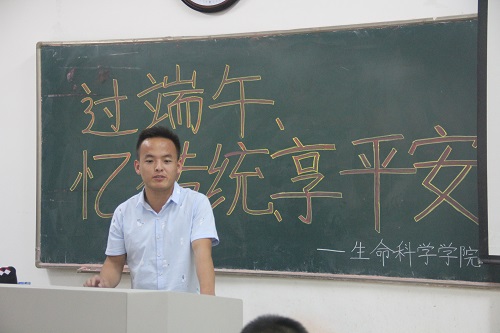 过端午、
忆传统、享平安
——生命科学学院